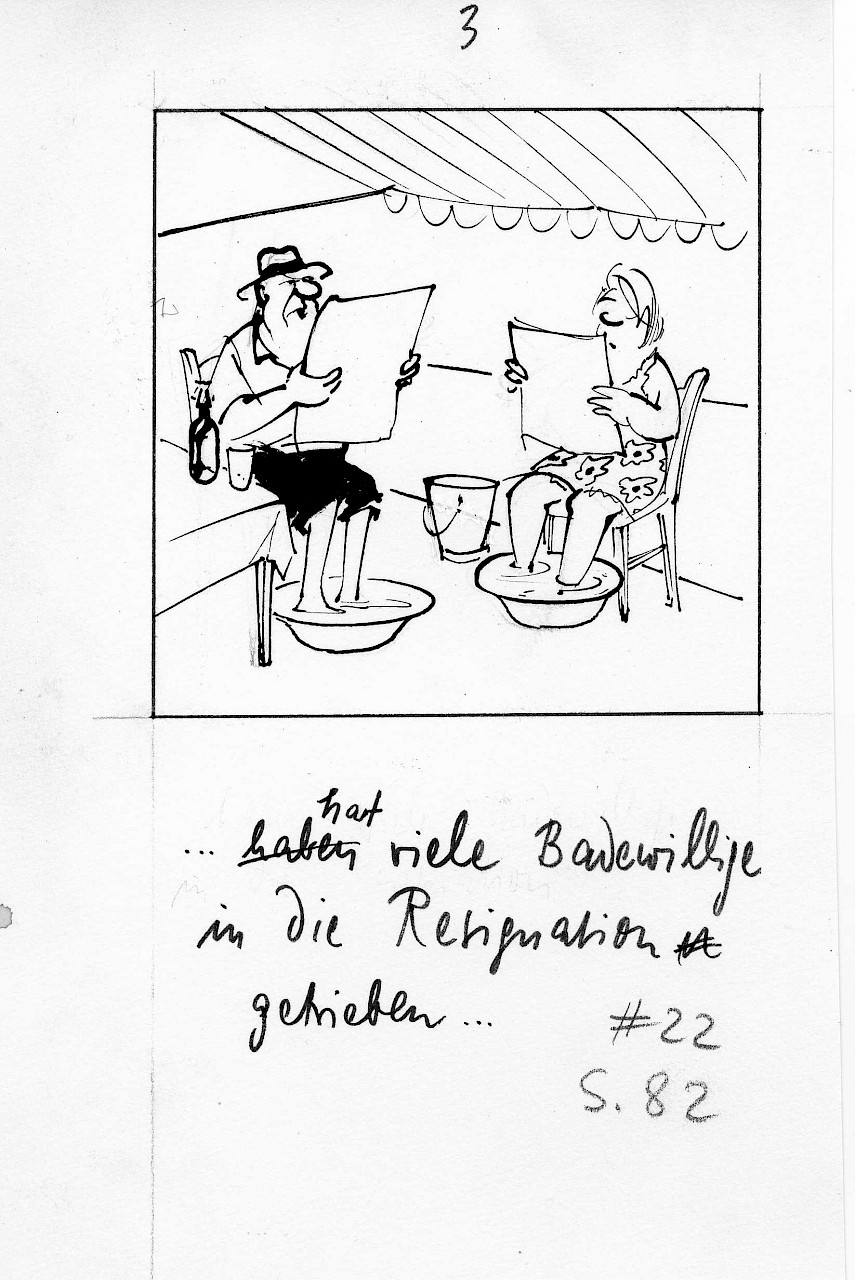 3
hat
... haben viele Badewillige
in die Resignation
getrieben...
#22
S. 82